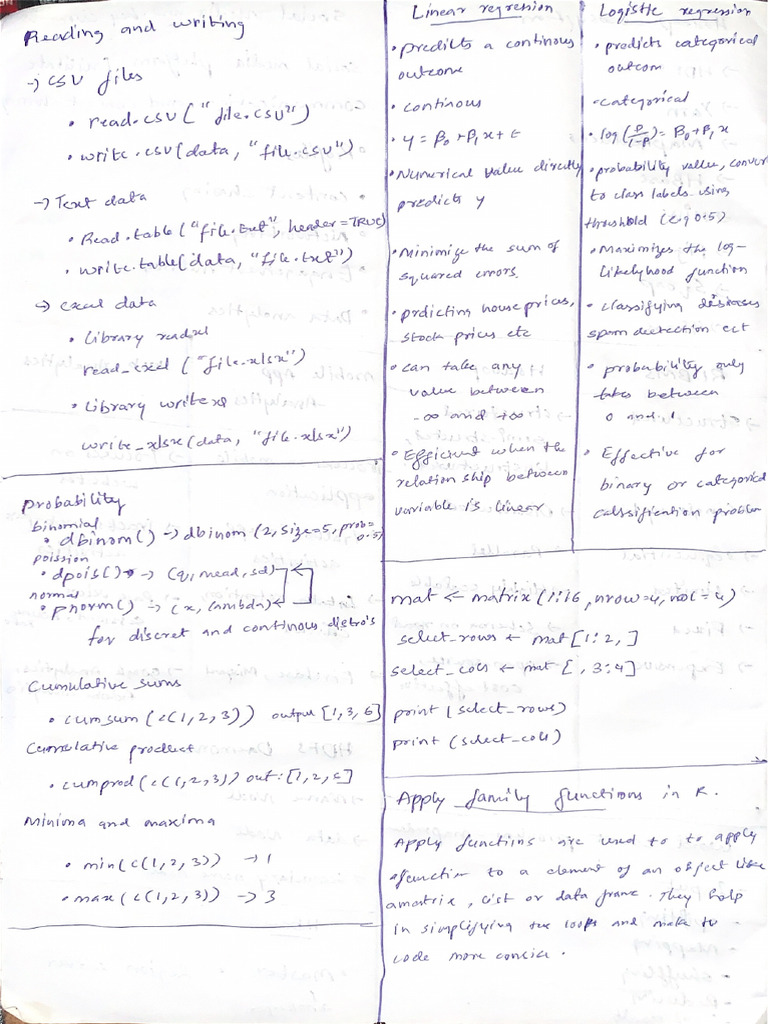 Reading and writing
→ CSV files
• read.csv("file.csv")
• write.csv(data, "file.csv")
→ Text data
• Read.table("file.txt", header=TRUE)
• write.table(data, "file.txt")
→ excel data
• Library readxl
read_excel ("file.xlsx")
• Library
write_xlsx(data, "file.xlsx")
Probability
binomial
• dbinom() → dbinom (2, size=5, prob=
0.5)
poission
• dpois() → (q, mead, sd)
normal
• pnorm() → (x, lambda)
for discret and continous distro's
Cumulative sums
• cumsum(c(1,2,3)) output [1,3,6]
Cumulative product
• cumprod(c(1,2,3)) out: [1,2,6]
Minima and maxima
• min(c(1,2,3)) → 1
• max(c(1,2,3)) → 3
Linear regression
• predicts a continous
outcome
• continous
• y = β₀ + β₁x + ε
• Numerical value directly
predicts y
• Minimize the sum of
squared errors.
• prdicting house prices,
stock prices etc
• can take any
value between
-∞ and +∞
• Efficient when the
relation ship between
variable is linear
Logistic regression
• predicts categorical
outcom
• categorical
• log(p/1-p) = β₀ + β₁x
• probability value, convert
to class labels using
threshold (e.g 0.5)
• Maximizes the log-
likelyhood function
• classifying
spam detection ect
• probability only
takes between
0 and 1
• Effective for
binary or categorical
calssification problem
mat ← matrix(1:16, nrow=4, ncol=4)
select_rows ← mat[1:2, ]
select_cols ← mat[ , 3:4]
print (select_rows)
print (select_cols)
Apply family functions in R.
Apply functions are used to to apply
afunction to a element of an object like
amatrix, list or data frame. They help
in simplifying the loops and make to
code more concise.